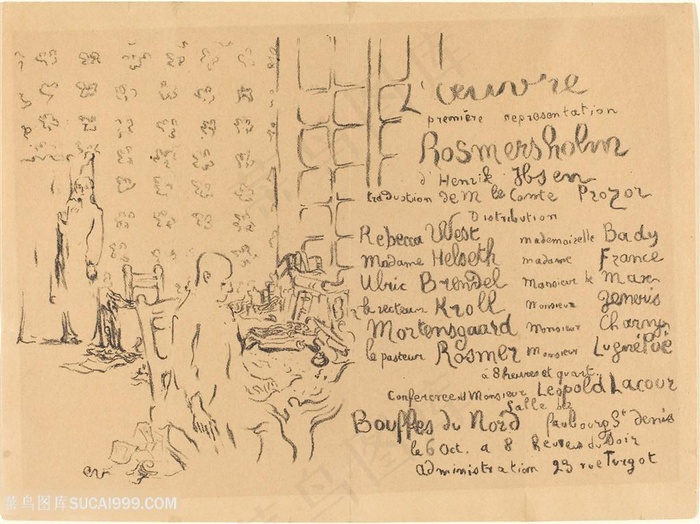 L'œuvre
première representation
Rosmersholm
d'Henrik Ibsen
traduction de M le Comte Prozor
Distribution
Rebecca West mademoiselle Bady
Madame Helseth madame France
Ulric Brendel Monsieur de Max
le recteur Kroll Monsieur Gemeris
Mortensgaard Monsieur Charny
le pasteur Rosmer Monsieur Lugné Poë
à 8 heures et quart
Conference de Monsieur Léopold Lacour
Salle des
Bouffes du Nord faubourg St denis
le 6 Oct. a 8 heures du soir
administration 23 rue Turgot
ev
菜鸟图库SUCAI999.COM